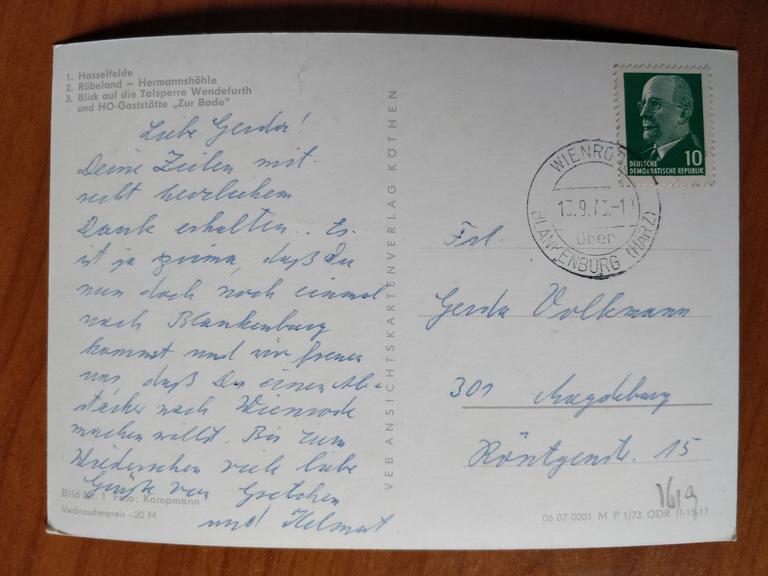 1. Hasselfelde
2. Rübeland – Hermannshöhle
3. Blick auf die Talsperre Wendefurth
und HO-Gaststätte „Zur Bode"
Liebe Gerda!
Deine Zeilen mit
recht herzlichem
Dank erhalten. Es
ist ja prima, daß Du
nun doch noch einmal
nach Blankenburg
kommst und wir freuen
uns, daß Du einen Ab-
stecher nach Wienrode
machen willst. Bis zum
Wiedersehen viele liebe
Grüße von Gretchen
und Helmut
Bild Nr. 1 Foto: Kampmann
Verbraucherpreis -,20 M
VEB ANSICHTSKARTENVERLAG KÖTHEN
10
DEUTSCHE
DEMOKRATISCHE REPUBLIK
WIENRODE
13.9.73.-1
über
BLANKENBURG (HARZ)
Frl.
Gerda Volkmann
301 Magdeburg
Röntgenstr. 15
1619
06 07 0001 M P 1/73 ODR II-13-17